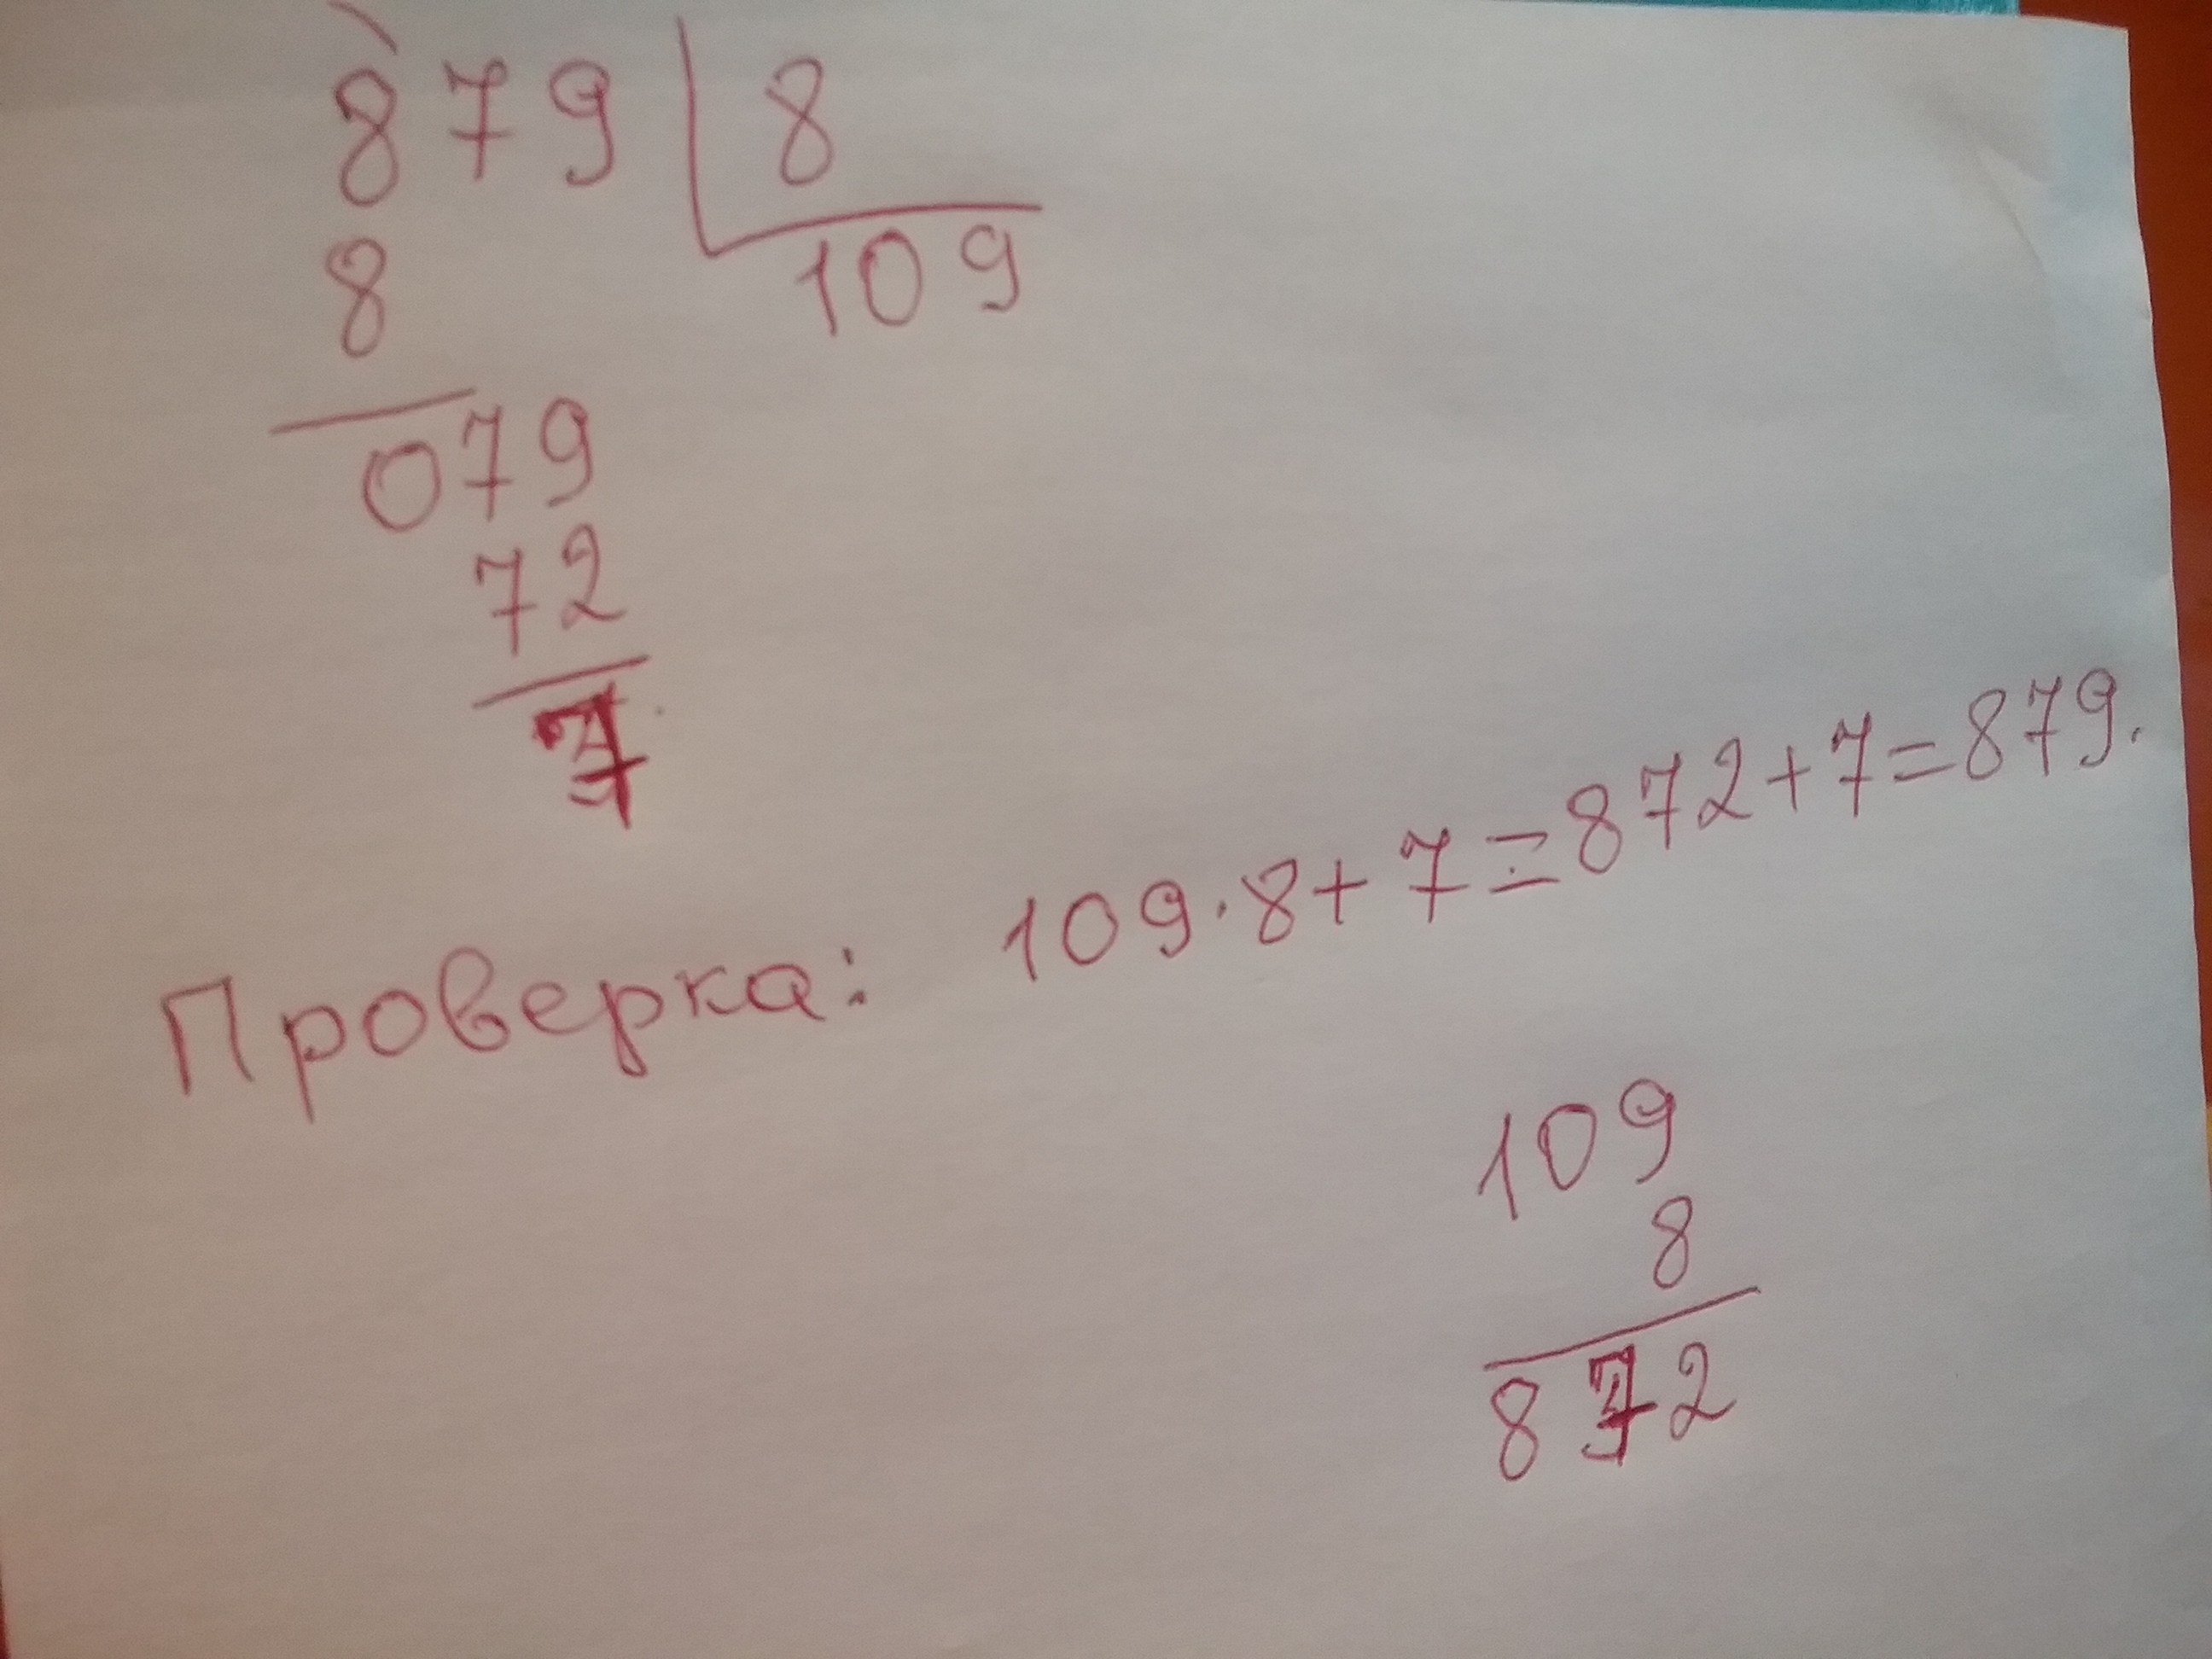 879 8
8 109
079
72
7
Проверка: 109·8+7=872+7=879.
109
8
872